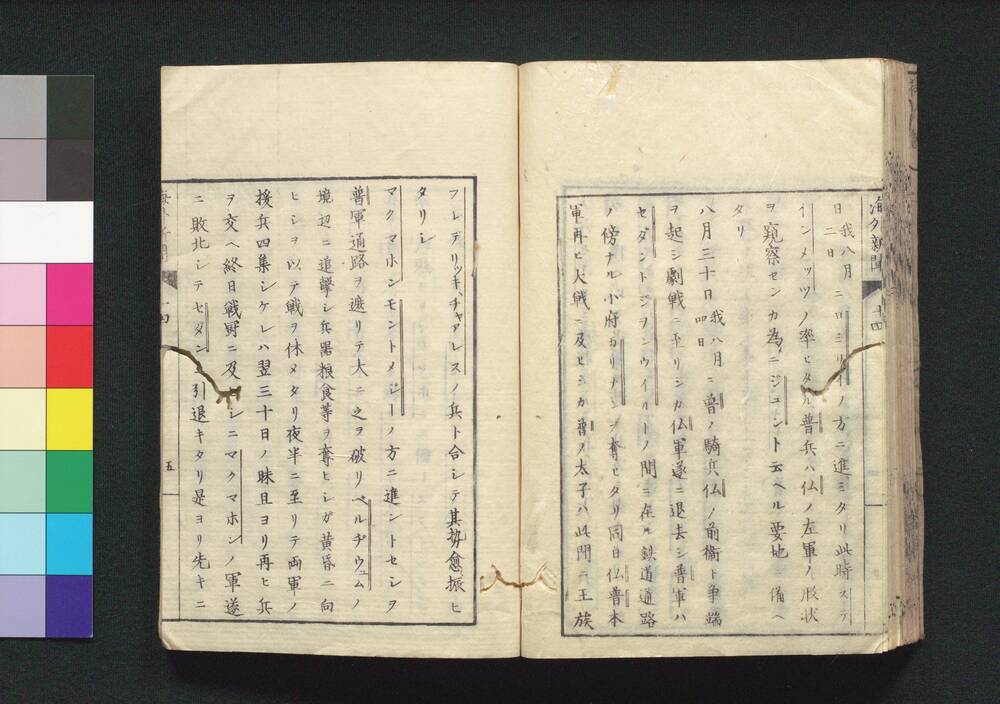 海外新聞
十四
日 我八月二日 ニロミリイノ方ニ進ミタリ此時ステ
インメッツノ率ヒタル普兵ハ仏ノ左軍ノ形状
ヲ窺察センカ為ニジュント云ヘル要地ニ備ヘ
タリ
八月三十日 我八月四日 ニ普ノ騎兵仏ノ前衛ト争端
ヲ起シ劇戦ニ至リシカ仏軍遂ニ退去シ普軍ハ
セダントジヲンウイルトノ間ニ在ル鉄道通路
ノ傍ナル小府カリナンヲ奪ヒタリ同日仏普本
軍再ヒ大戦ニ及ヒシカ普ノ太子ハ此間ニ王族
フレデリッキ、チャアレスノ兵ト合シテ其勢愈振ヒ
タリシ
マクマホンモントメジーノ方ニ進ントセシヲ
普軍通路ヲ遮リテ大ニ之ヲ破リベルヂウムノ
境辺ニ追撃シ兵器粮食等ヲ奪ヒシガ黄昏ニ向
ヒシヲ以テ戦ヲ休メタリ夜半ニ至リテ両軍ノ
援兵四集シケレハ翌三十日ノ昧旦ヨリ再ヒ兵
ヲ交ヘ終日戦野ニ及ヒシニマクマホンノ軍遂
ニ敗北シテセダンニ引退キタリ是ヨリ先キニ
五